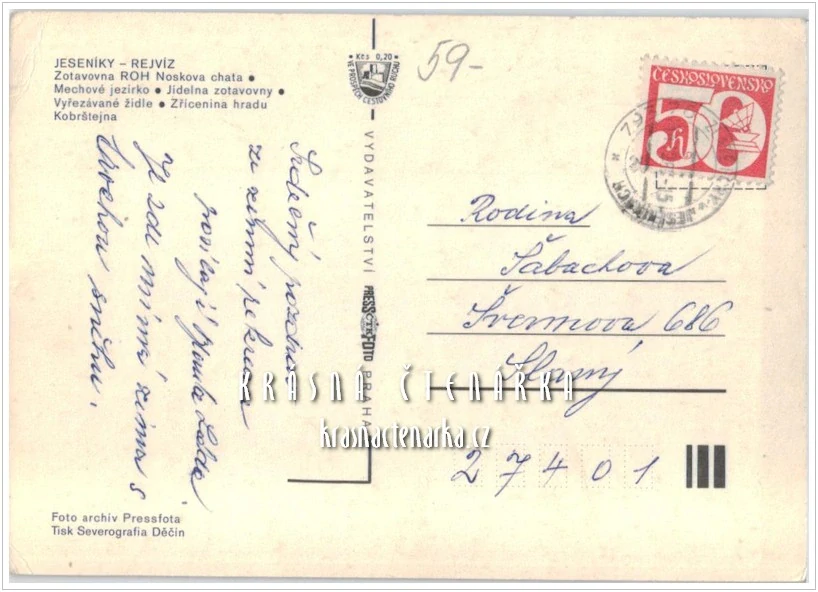 JESENÍKY – REJVÍZ
Zotavovna ROH Noskova chata •
Mechové jezírko • Jídelna zotavovny •
Vyřezávané židle • Zřícenina hradu
Kobrštejna
Kčs 0,20
VE PROSPĚCH CESTOVNÍHO RUCHU
59-
ČESKOSLOVENSKO
50 h
VYDAVATELSTVÍ PRESSFOTO PRAHA
ČTK
Srdečný pozdrav
ze zimní rekreace
posílají
Je zde mírná zima s
trochou sněhu.
Rodina
Šabachova
Švermova 686
Slaný
27401
KRÁSNÁ ČTENÁŘKA
krasnactenarka.cz
Foto archiv Pressfota
Tisk Severografia Děčín